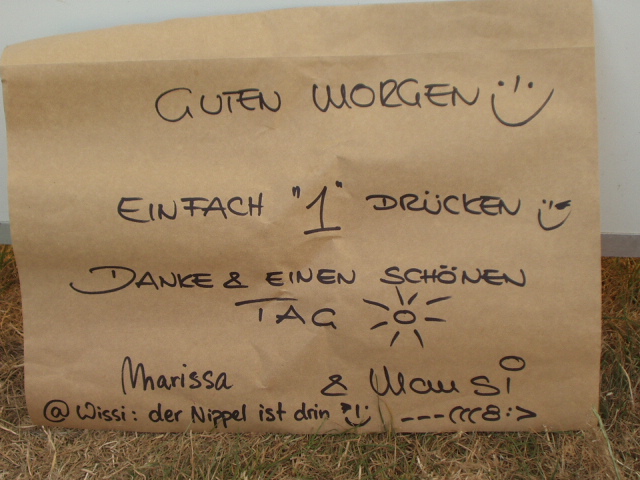 GUTEN MORGEN
EINFACH "1" DRÜCKEN
DANKE & EINEN SCHÖNEN
TAG
Marissa & Mausi
@ Wissi: der Nippel ist drin ---(((8:>